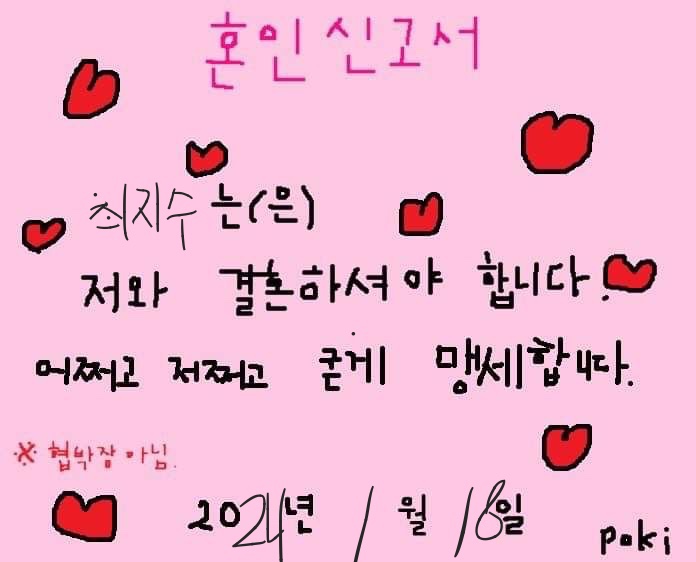 혼인신고서
최지수는(은)
저와 결혼하셔야 합니다.
어쩌고 저쩌고 굳게 맹세합니다.
※ 협박장 아님.
2021년 1월 18일
poki